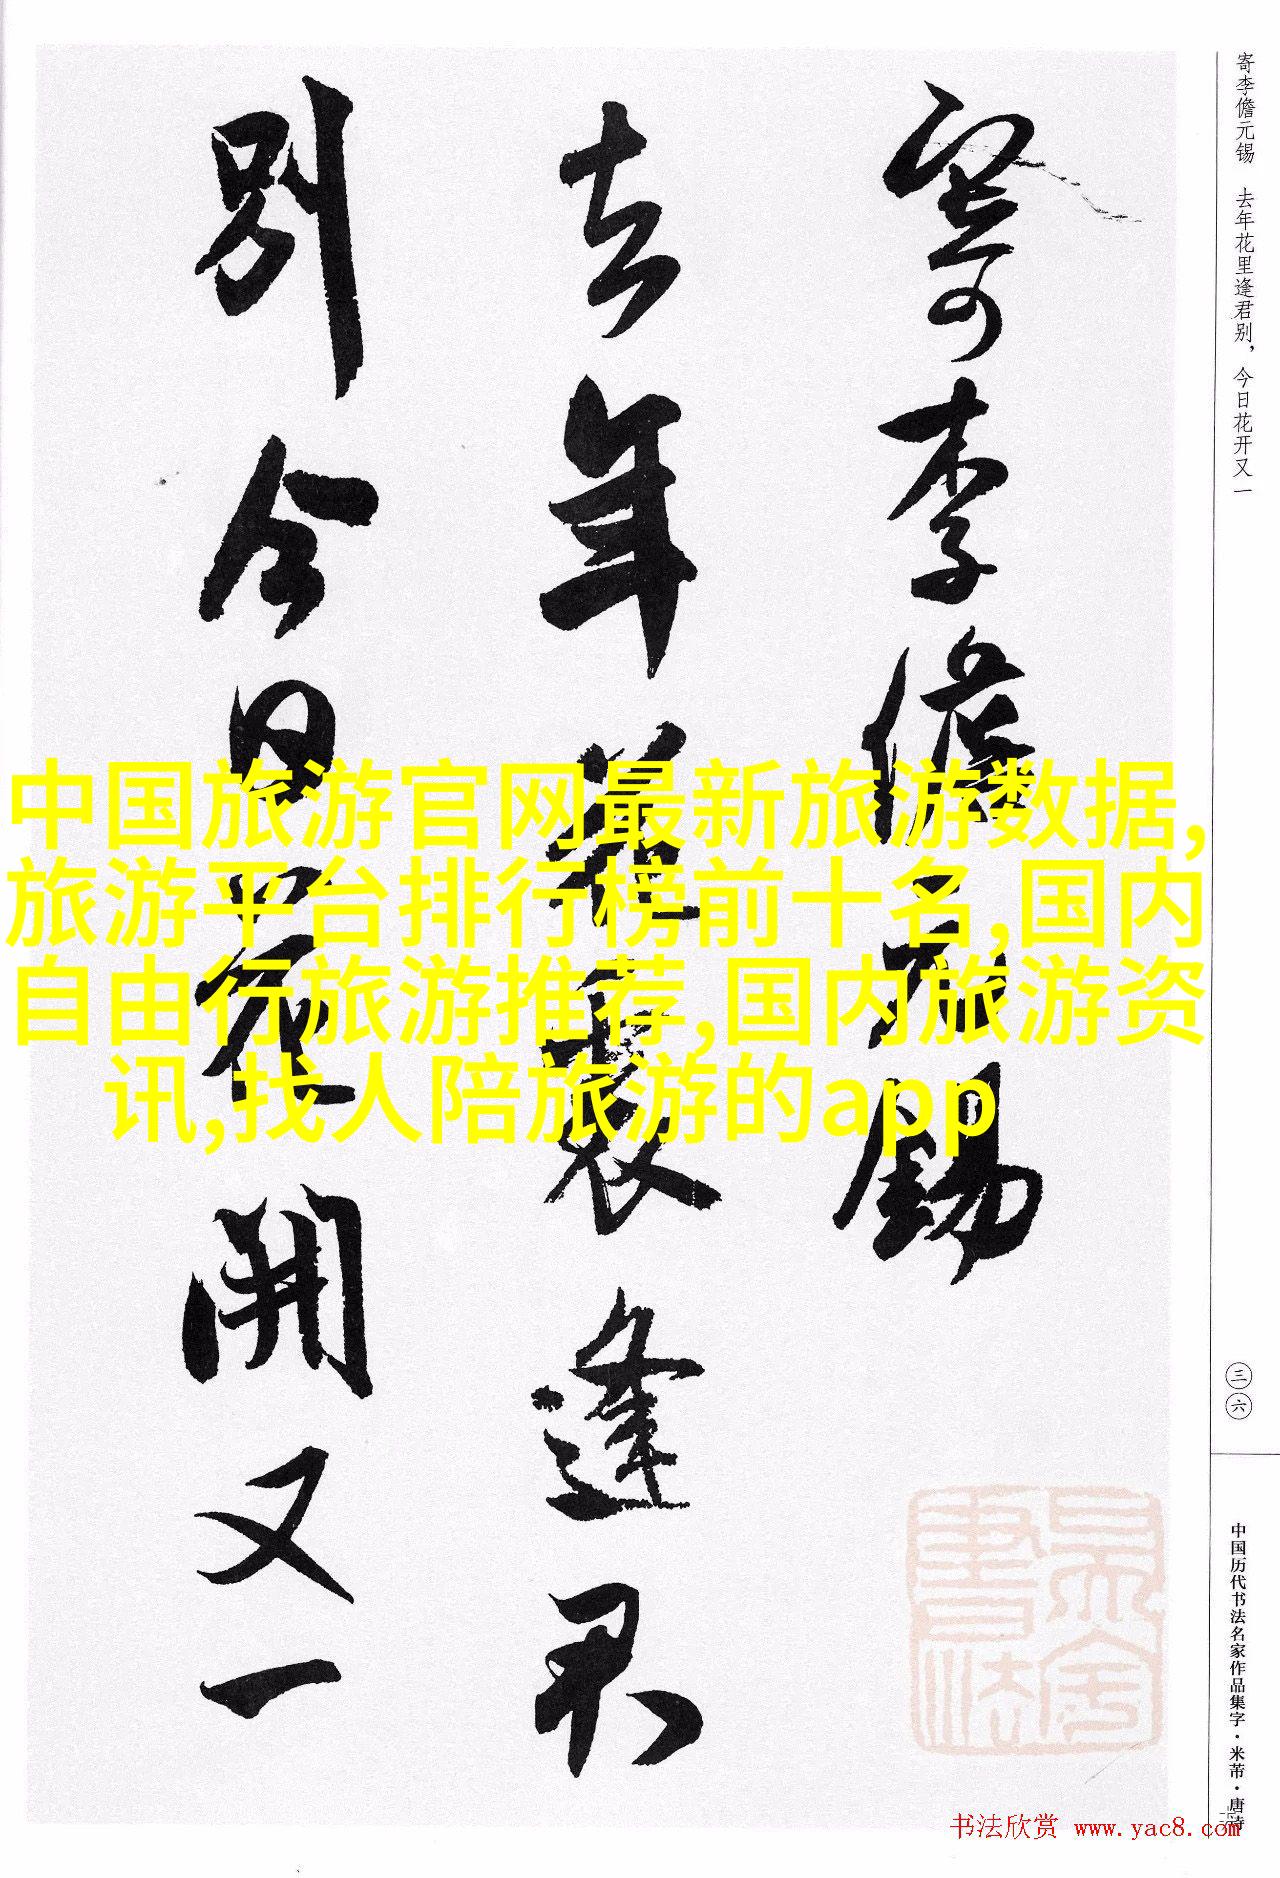 寄李儋元锡 去年花里逢君别，今日花开又一
寄李儋元锡
去年花裏逢君
别今日花開又一
中国旅游官网最新旅游数据,
旅游平台排行榜前十名,国内
自由行旅游推荐,国内旅游资
讯,找人陪旅游的app
三六
中国历代书法名家作品集字·米芾·唐诗
书法欣赏 www.yac8.com